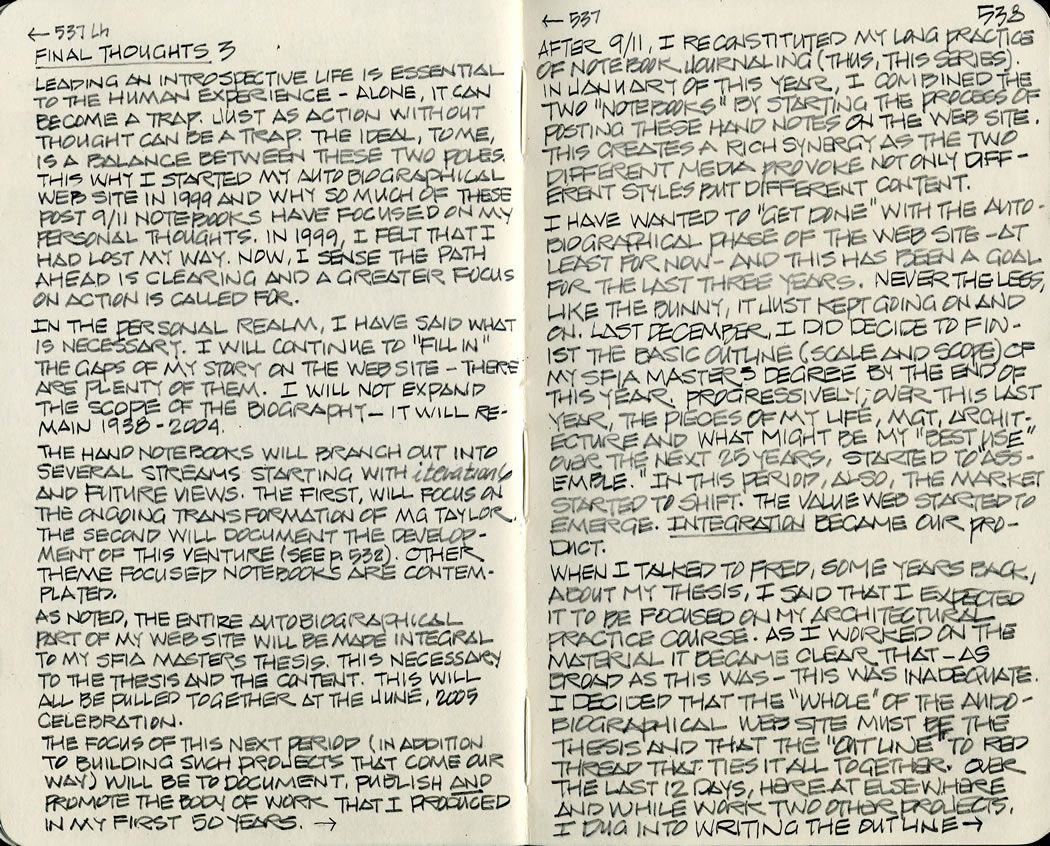 ← 537 Lh
FINAL THOUGHTS 3
LEADING AN INTROSPECTIVE LIFE IS ESSENTIAL
TO THE HUMAN EXPERIENCE - ALONE, IT CAN
BECOME A TRAP. JUST AS ACTION WITHOUT
THOUGHT CAN BE A TRAP. THE IDEAL, TO ME,
IS A BALANCE BETWEEN THESE TWO POLES.
THIS WHY I STARTED MY AUTOBIOGRAPHICAL
WEB SITE IN 1999 AND WHY SO MUCH OF THESE
POST 9/11 NOTEBOOKS HAVE FOCUSED ON MY
PERSONAL THOUGHTS. IN 1999, I FELT THAT I
HAD LOST MY WAY. NOW, I SENSE THE PATH
AHEAD IS CLEARING AND A GREATER FOCUS
ON ACTION IS CALLED FOR.
IN THE PERSONAL REALM, I HAVE SAID WHAT
IS NECESSARY. I WILL CONTINUE TO "FILL IN"
THE GAPS OF MY STORY ON THE WEB SITE - THERE
ARE PLENTY OF THEM. I WILL NOT EXPAND
THE SCOPE OF THE BIOGRAPHY - IT WILL RE-
MAIN 1938 - 2004.
THE HAND NOTEBOOKS WILL BRANCH OUT INTO
SEVERAL STREAMS STARTING WITH iterations
AND FUTURE VIEWS. THE FIRST, WILL FOCUS ON
THE ONGOING TRANSFORMATION OF MG TAYLOR.
THE SECOND WILL DOCUMENT THE DEVELOP-
MENT OF THIS VENTURE (SEE p. 532). OTHER
THEME FOCUSED NOTEBOOKS ARE CONTEM-
PLATED.
AS NOTED, THE ENTIRE AUTOBIOGRAPHICAL
PART OF MY WEB SITE WILL BE MADE INTEGRAL
TO MY SFIA MASTERS THESIS. THIS NECESSARY
TO THE THESIS AND THE CONTENT. THIS WILL
ALL BE PULLED TOGETHER AT THE JUNE, 2005
CELEBRATION.
THE FOCUS OF THIS NEXT PERIOD (IN ADDITION
TO BUILDING SUCH PROJECTS THAT COME OUR
WAY) WILL BE TO DOCUMENT, PUBLISH AND
PROMOTE THE BODY OF WORK THAT I PRODUCED
IN MY FIRST 50 YEARS. →
← 537
538
AFTER 9/11, I RECONSTITUTED MY LONG PRACTICE
OF NOTEBOOK JOURNALING (THUS, THIS SERIES).
IN JANUARY OF THIS YEAR, I COMBINED THE
TWO "NOTEBOOKS" BY STARTING THE PROCESS OF
POSTING THESE HAND NOTES ON THE WEB SITE.
THIS CREATES A RICH SYNERGY AS THE TWO
DIFFERENT MEDIA PROVOKE NOT ONLY DIFF-
ERENT STYLES BUT DIFFERENT CONTENT.
I HAVE WANTED TO "GET DONE" WITH THE AUTO-
BIOGRAPHICAL PHASE OF THE WEB SITE - AT
LEAST FOR NOW - AND THIS HAS BEEN A GOAL
FOR THE LAST THREE YEARS. NEVER THE LESS,
LIKE THE BUNNY, IT JUST KEPT GOING ON AND
ON. LAST DECEMBER, I DID DECIDE TO FIN-
IST THE BASIC OUTLINE (SCALE AND SCOPE) OF
MY SFIA MASTERS DEGREE BY THE END OF
THIS YEAR. PROGRESSIVELY, OVER THIS LAST
YEAR, THE PIECES OF MY LIFE, MGT, ARCHIT-
ECTURE AND WHAT MIGHT BE MY "BEST USE"
OVER THE NEXT 25 YEARS, STARTED TO "ASS-
EMBLE." IN THIS PERIOD, ALSO, THE MARKET
STARTED TO SHIFT. THE VALUE WEB STARTED TO
EMERGE. INTEGRATION BECAME OUR PRO-
DUCT.
WHEN I TALKED TO FRED, SOME YEARS BACK,
ABOUT MY THESIS, I SAID THAT I EXPECTED
IT TO BE FOCUSED ON MY ARCHITECTURAL
PRACTICE COURSE. AS I WORKED ON THE
MATERIAL IT BECAME CLEAR THAT - AS
BROAD AS THIS WAS - THIS WAS INADEQUATE.
I DECIDED THAT THE "WHOLE" OF THE AUTO-
BIOGRAPHICAL WEB SITE MUST BE THE
THESIS AND THAT THE "OUTLINE" TO RED
THREAD THAT TIES IT ALL TOGETHER. OVER
THE LAST 12 DAYS, HERE AT ELSEWHERE
AND WHILE WORK TWO OTHER PROJECTS,
I DUG INTO WRITING THE OUTLINE →